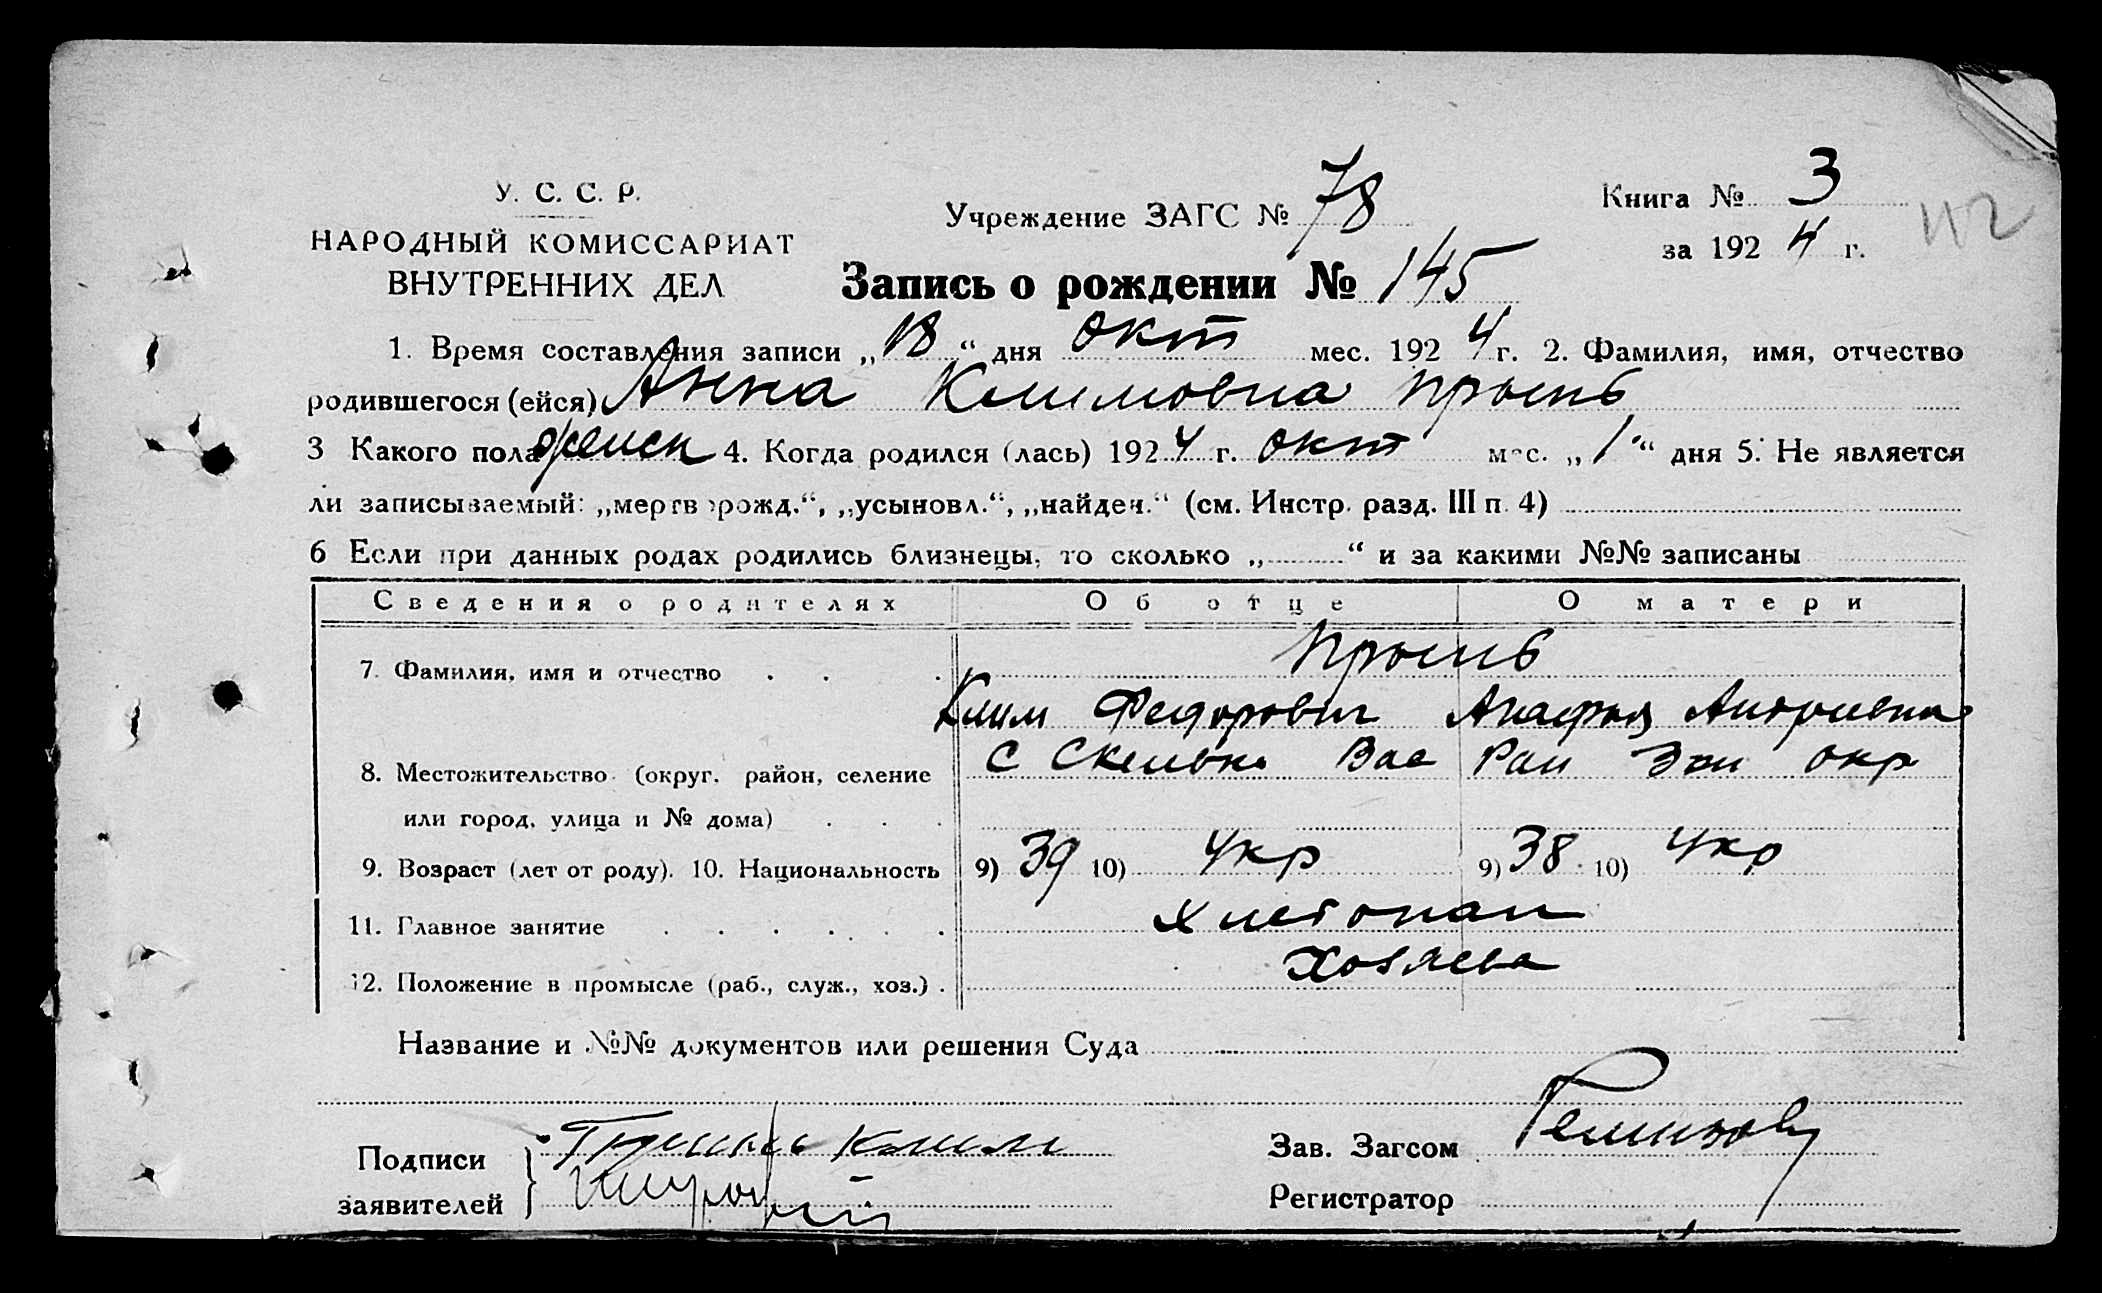 У. С. С. Р.
НАРОДНЫЙ КОМИССАРИАТ
ВНУТРЕННИХ ДЕЛ
Учреждение ЗАГС № 78
Книга № 3
за 1924 г.
Запись о рождении № 145
1. Время составления записи „18“ дня окт мес. 1924 г. 2. Фамилия, имя, отчество
родившегося (ейся) Анна Климовна
3 Какого пола женск 4. Когда родился (лась) 1924 г. окт мес. „1“ дня 5. Не является
ли записываемый: „мертворожд.“, „усыновл.“, „найден.“ (см. Инстр. разд. III п. 4)
6 Если при данных родах родились близнецы, то сколько „ “ и за какими №№ записаны
Сведения о родителях Об отце О матери
7. Фамилия, имя и отчество
Клим Федорович
8. Местожительство (округ, район, селение С Скельки Вас Рай Зап окр
или город, улица и № дома)
9. Возраст (лет от роду). 10. Национальность 9) 39 10) Укр 9) 38 10) Укр
11. Главное занятие Хлебопаш
12. Положение в промысле (раб., служ., хоз.) Хозяева
Название и №№ документов или решения Суда
Подписи Клим
заявителей
Зав. Загсом
Регистратор